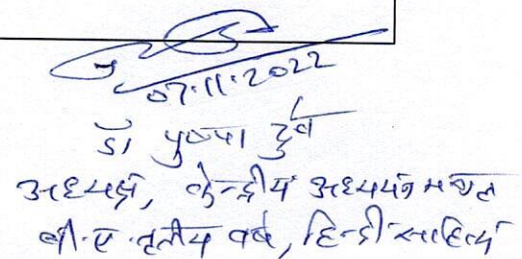 07.11.2022
डॉ पुष्पा दुबे
अध्यक्ष, केन्द्रीय अध्ययन मण्डल
बी.ए. तृतीय वर्ष, हिन्दी साहित्य